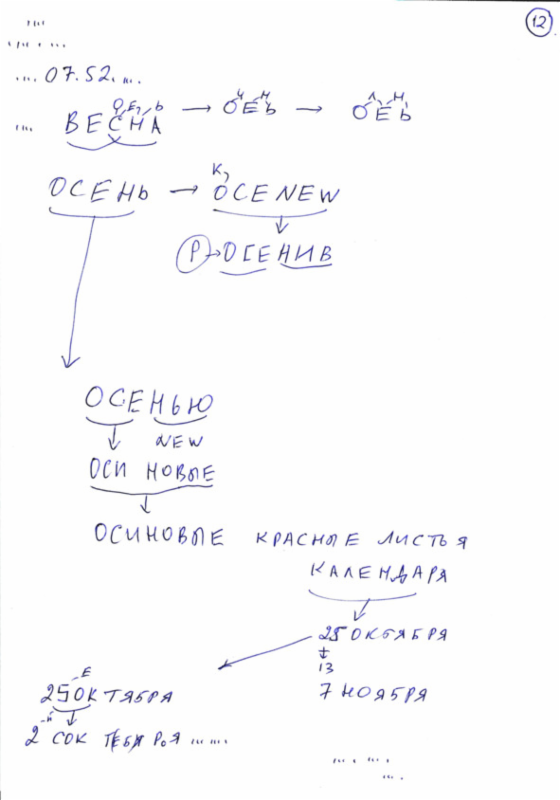 12
.... 07.52. ....
О Е, Ь
.... ВЕСНА → ОЕЬ → ОЕЬ
ОСЕНЬ → ОСЕNEW
Р → ОСЕНИВ
ОСЕНЬЮ
NEW
ОСИ НОВЫЕ
ОСИНОВЫЕ КРАСНЫЕ ЛИСТЬЯ
КАЛЕНДАРЯ
25 ОКТЯБРЯ
+
13
7 НОЯБРЯ
Е
25 ОКТЯБРЯ
2 СОК